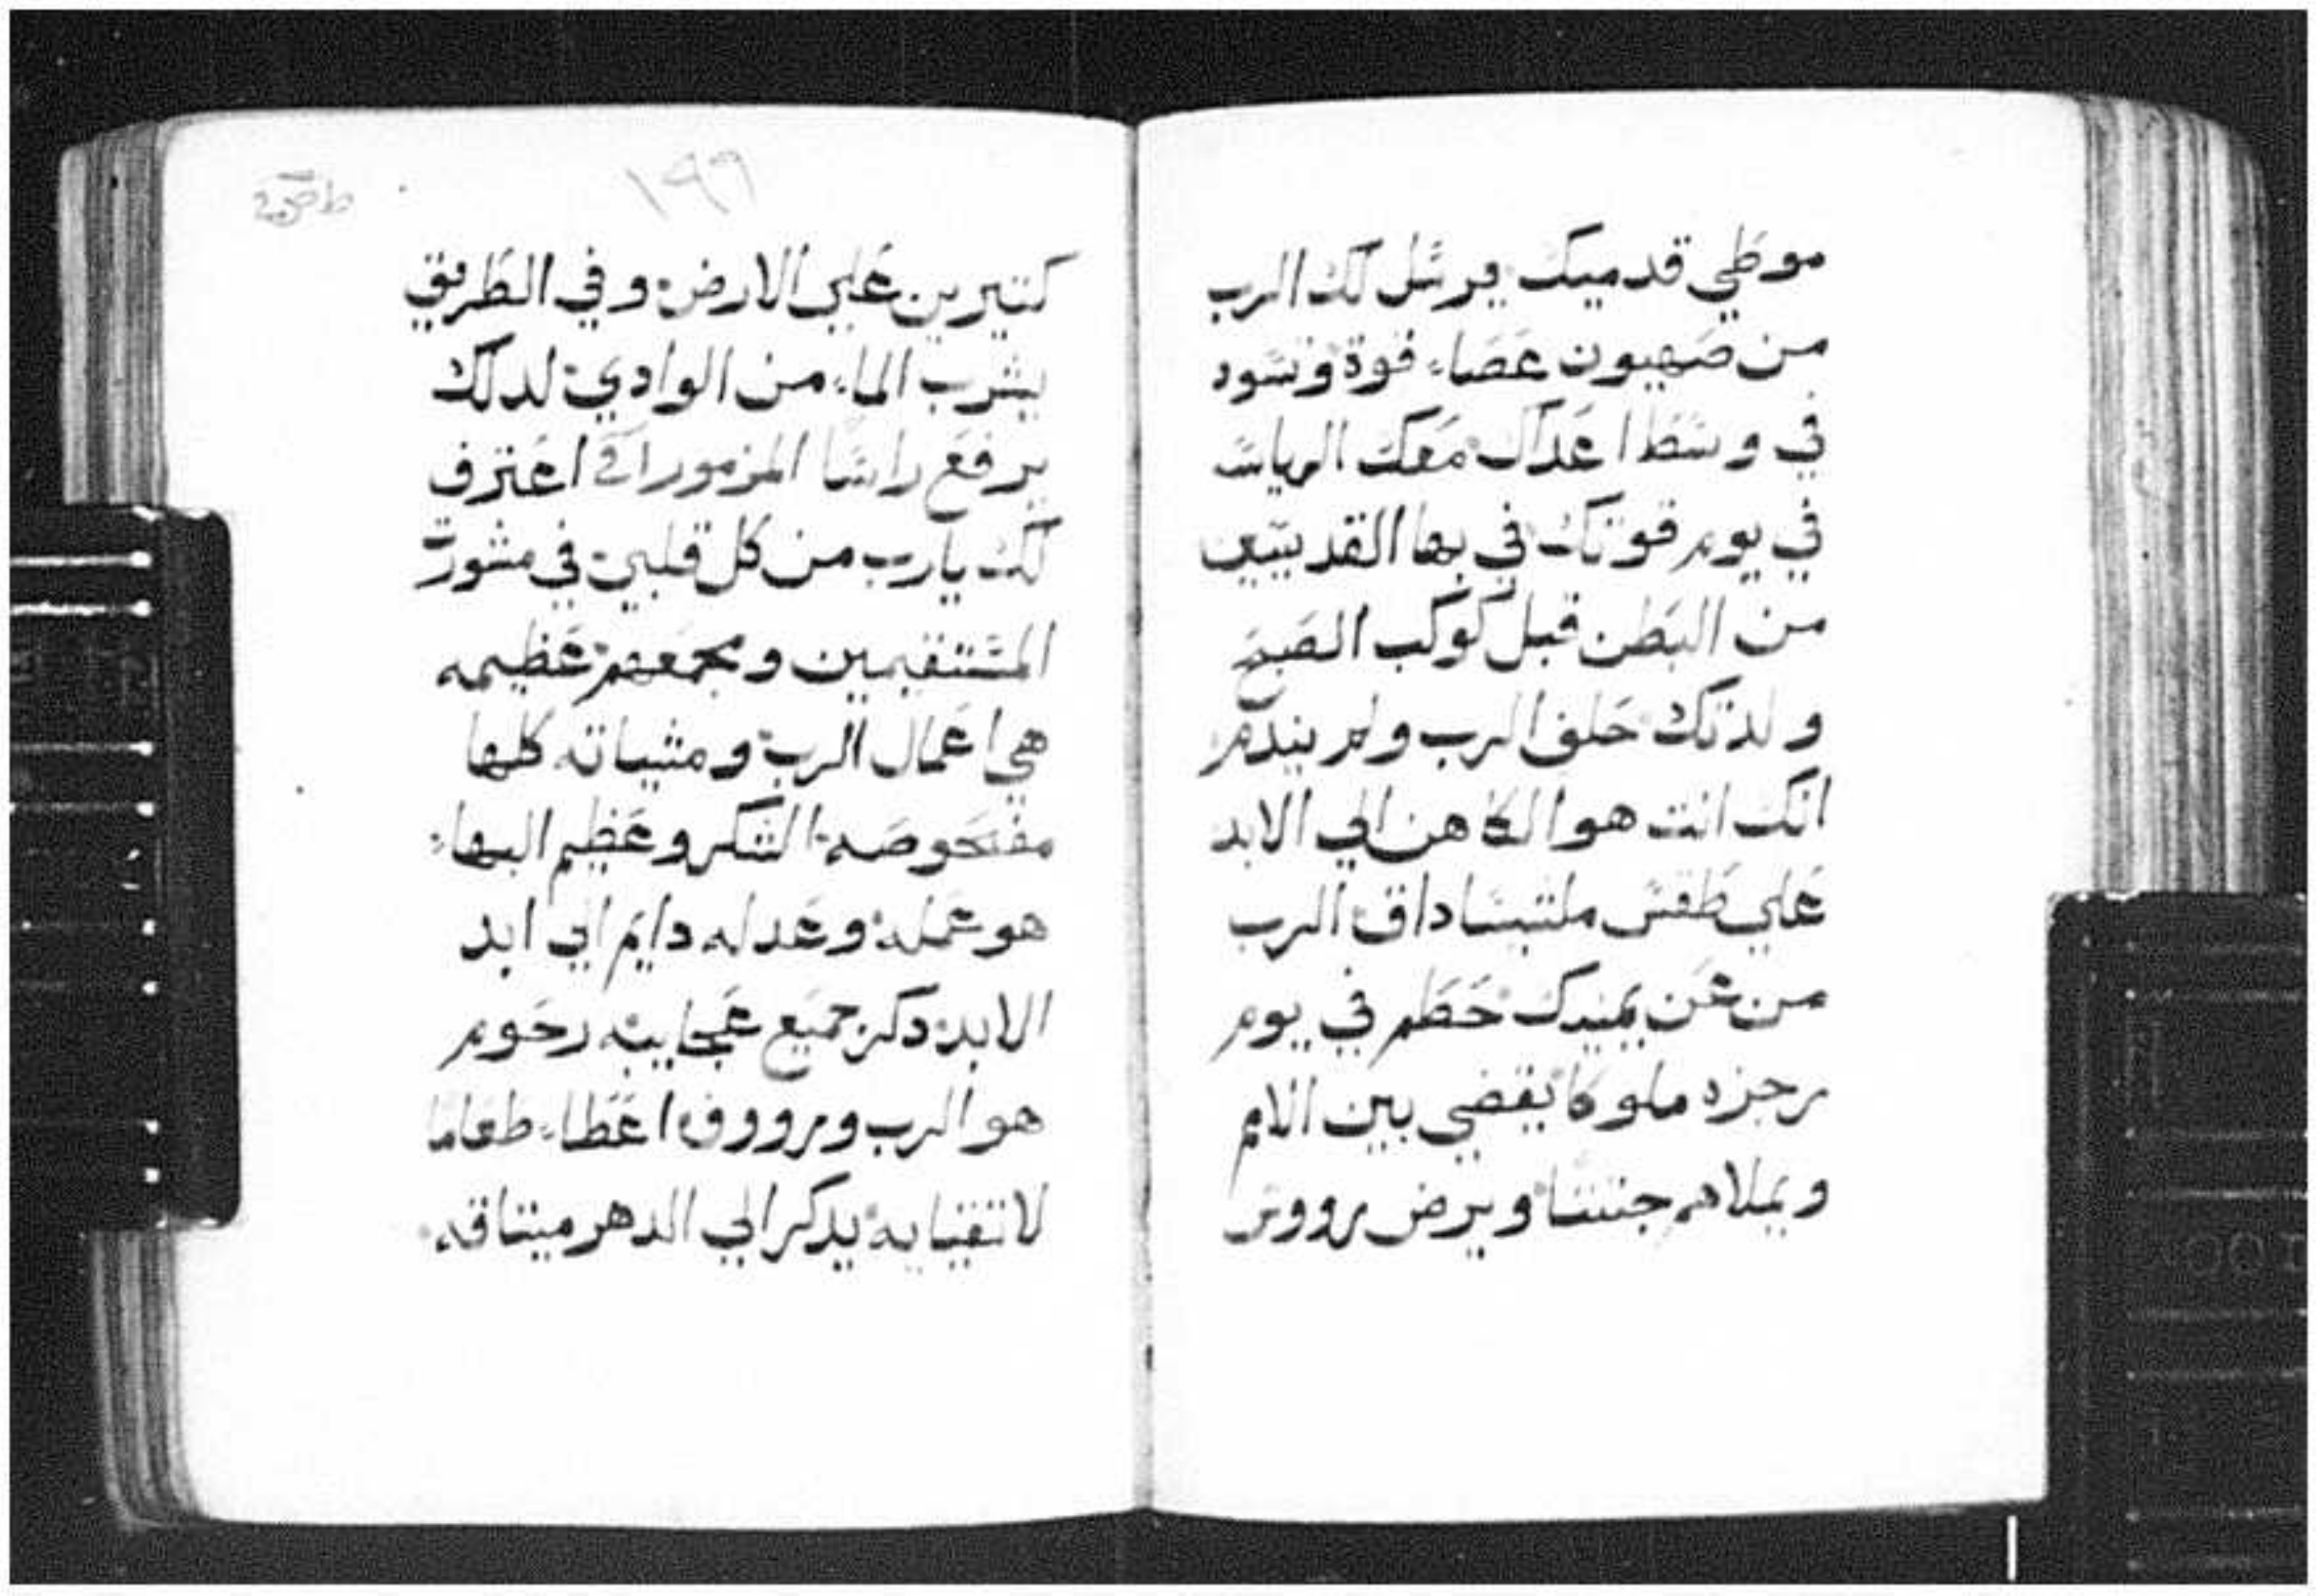 موطي قدميك يرسل لك الرب
من صهيون عصاء قوة وتسود
في وسط اعداك معك الرياسه
في يوم قوتك في بها القديسين
من البطن قبل كوكب الصبح
ولدتك حلف الرب ولم يندم
انك انت هو الكاهن الي الابد
علي طقس ملشيساداق الرب
من عن يمينك حطم في يوم
رجزه ملوكا يقضي بين الامم
ويملاهم جثتا ويرض رووس
١٩٩
كتيرين علي الارض وفي الطريق
يشرب الماء من الوادي لدلك
يرفع راسا المزمور اعترف
لك يارب من كل قلبي في مشورة
المستقيمين ومجمعهم عظيمه
هي اعمال الرب ومشياته كلها
مفحوصه الشكر وعظيم البهاء
هو عمله وعدله دايم الي ابد
الابد دكر جميع عجايبه رحوم
هو الرب ورووف اعطاء طعاما
لاتقيايه يدكر الي الدهر ميتاقه